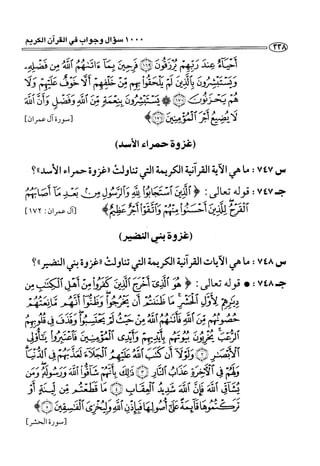 ١٠٠٠ سؤال وجواب في القرآن الكريم
٢٣٨
أَحْيَاءٌ عِندَ رَبِّهِمْ يُرْزَقُونَ ﴿١٦٩﴾ فَرِحِينَ بِمَا ءَاتَىٰهُمُ اللَّهُ مِن فَضْلِهِ
وَيَسْتَبْشِرُونَ بِالَّذِينَ لَمْ يَلْحَقُوا بِهِم مِّنْ خَلْفِهِمْ أَلَّا خَوْفٌ عَلَيْهِمْ وَلَا
هُمْ يَحْزَنُونَ ﴿١٧٠﴾ ۞ يَسْتَبْشِرُونَ بِنِعْمَةٍ مِّنَ اللَّهِ وَفَضْلٍ وَأَنَّ اللَّهَ
لَا يُضِيعُ أَجْرَ الْمُؤْمِنِينَ ﴿١٧١﴾ [سورة آل عمران]
(غزوة حمراء الأسد)
س ٧٤٧ : ما هي الآية القرآنية الكريمة التي تناولتْ «غزوة حمراء الأسد»؟
جـ ٧٤٧ : قوله تعالى : ﴿ الَّذِينَ اسْتَجَابُوا لِلَّهِ وَالرَّسُولِ مِنۢ بَعْدِ مَا أَصَابَهُمُ
الْقَرْحُ لِلَّذِينَ أَحْسَنُوا مِنْهُمْ وَاتَّقَوْا أَجْرٌ عَظِيمٌ ﴾ [آل عمران : ١٧٢]
(غزوة بني النضير)
س ٧٤٨ : ما هي الآيات القرآنية الكريمة التي تناولتْ «غزوة بني النضير»؟
جـ ٧٤٨ : • قوله تعالى : ﴿ هُوَ الَّذِي أَخْرَجَ الَّذِينَ كَفَرُوا مِنْ أَهْلِ الْكِتَابِ مِن
دِيَارِهِمْ لِأَوَّلِ الْحَشْرِ مَا ظَنَنتُمْ أَن يَخْرُجُوا وَظَنُّوا أَنَّهُم مَّانِعَتُهُمْ
حُصُونُهُم مِّنَ اللَّهِ فَأَتَىٰهُمُ اللَّهُ مِنْ حَيْثُ لَمْ يَحْتَسِبُوا وَقَذَفَ فِي قُلُوبِهِمُ
الرُّعْبَ يُخْرِبُونَ بُيُوتَهُم بِأَيْدِيهِمْ وَأَيْدِي الْمُؤْمِنِينَ فَاعْتَبِرُوا يَا أُولِي
الْأَبْصَارِ ﴿٢﴾ وَلَوْلَا أَن كَتَبَ اللَّهُ عَلَيْهِمُ الْجَلَاءَ لَعَذَّبَهُمْ فِي الدُّنْيَا
وَلَهُمْ فِي الْآخِرَةِ عَذَابُ النَّارِ ﴿٣﴾ ذَٰلِكَ بِأَنَّهُمْ شَاقُّوا اللَّهَ وَرَسُولَهُ وَمَن
يُشَاقِّ اللَّهَ فَإِنَّ اللَّهَ شَدِيدُ الْعِقَابِ ﴿٤﴾ مَا قَطَعْتُم مِّن لِّينَةٍ أَوْ
تَرَكْتُمُوهَا قَائِمَةً عَلَىٰ أُصُولِهَا فَبِإِذْنِ اللَّهِ وَلِيُخْزِيَ الْفَاسِقِينَ ﴿٥﴾ ﴾
[سورة الحشر]